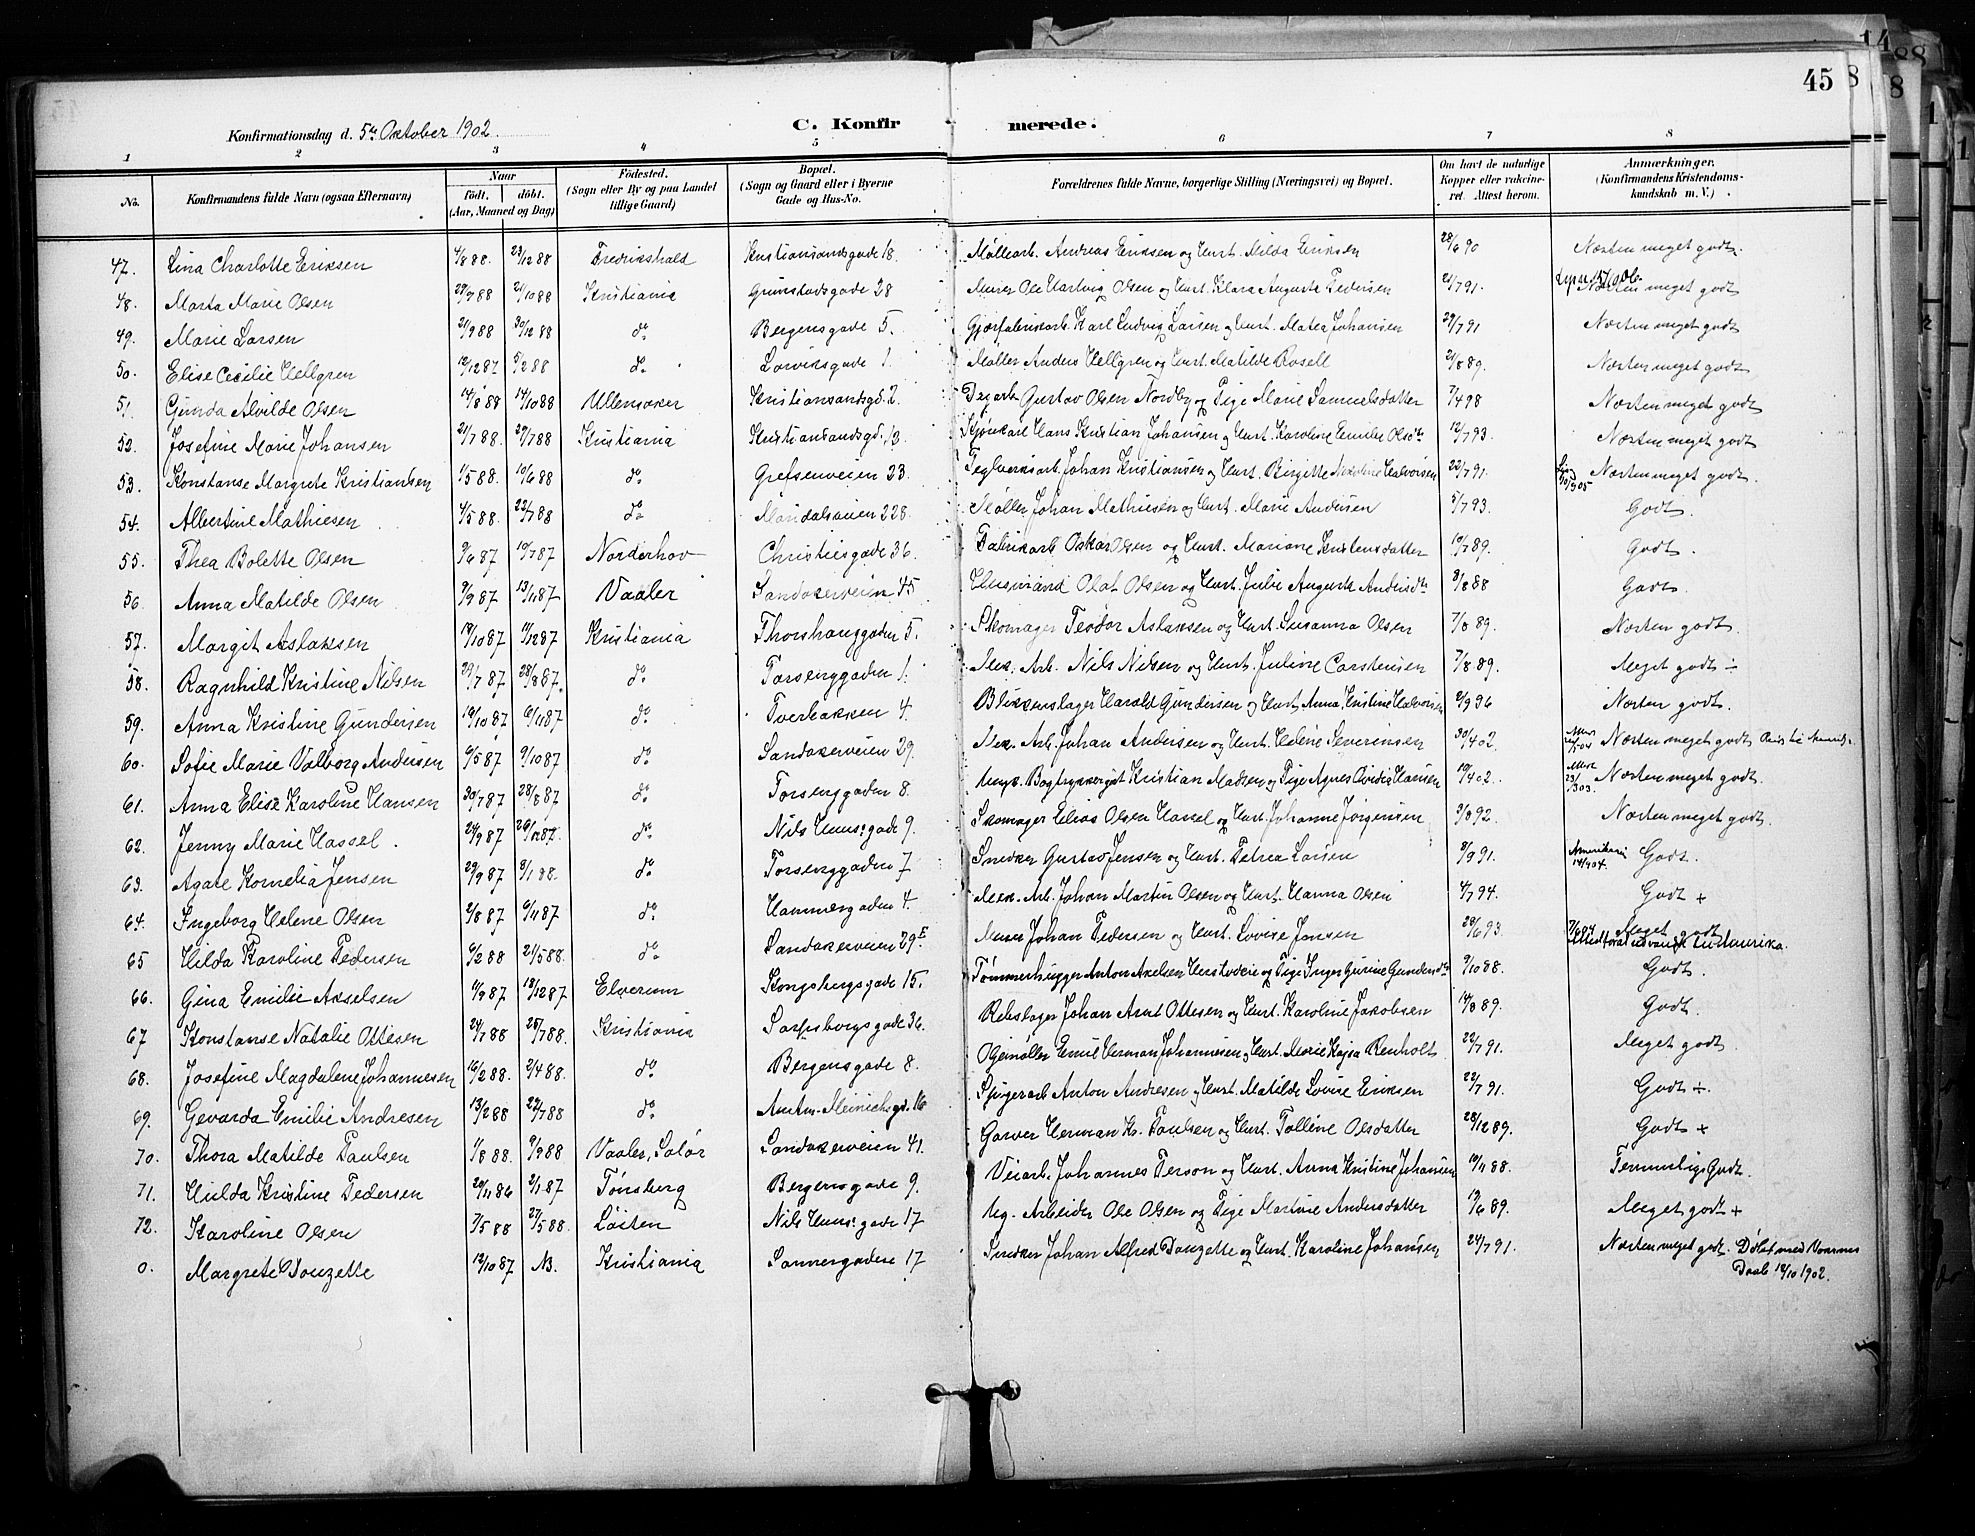 45
Konfirmationsdag d. 5te Oktober 1902.
C. Konfirmerede.
1 2 3 4 5 6 7 8
No. Konfirmandens fulde Navn (ogsaa Efternavn) Naar født. døbt. (Aar, Maaned og Dag) Fødested. (Sogn eller By og paa Landet tillige Gaard) Bopæl. (Sogn og Gaard eller i Byerne Gade og Hus-No. Forældrenes fulde Navne, borgerlige Stilling (Næringsvei) og Bopæl. Om havt de naturlige Kopper eller vakcineret. Attest herom. Anmærkninger. (Konfirmandens Kristendomskundskab m. V.)
47. Lina Charlotte Eriksen 4/8 88 23/12 88 Fredrikshald Kristiansandsgade 18. Møllearb. Andreas Eriksen og Hust. Milda Eriksen 28/6 90 Næsten meget godt.
48. Marta Marie Olsen 29/7 88 21/10 88 Kristiania Grimstadsgade 28 Murer Ole Hartvig Olsen og Hust. Klara Augusta Pedersen 21/7 91. Næsten meget godt
49. Marie Larsen 21/9 88 30/12 88 do Bergensgade 5. Gjørfabrikarb. Karl Ludvig Larsen og Hust. Matea Johansen 29/7 91 Næsten meget godt
50. Elise Cecilie Hellgren 12/12 87 5/2 88 do Larviksgade 1 Møller Anders Hellgren og Hust. Matilde Rosell 21/8 89. Næsten meget godt
51. Gunda Alvilde Olsen 14/8 88 14/10 88 Ullensaker Kristiansandsgd. 2. Degarb. Gustav Olsen Nordby og Pige Marie Samuelsdatter 7/4 98 Næsten meget godt
52. Josefine Marie Johansen 21/7 88. 29/7 88 Kristiania Kristiansandsgd. 13. Kjørekarl Hans Kristian Johansen og Hust. Karoline Emilie Olsdtr 12/7 93. Næsten meget godt
53. Konstanse Margrete Kristiansen 1/5 88. 10/6 88 do Grefsenveien 23. Teglverksarb. Johan Kristiansen og Hust. Birgitte Nicoline Halvorsen 22/7 91. Næsten meget godt.
54. Albertine Mathiesen 4/5 88. 22/7 88 do Maridalsveien 228. Møller Johan Mathiesen og Hust. Marie Andersen 5/7 93. Godt.
55. Thea Bolette Olsen 9/6 87 10/7 87 Norderhov Christiesgade 36. Fabrikarb. Oskar Olsen og Hust. Mariane Kristensdatter 10/7 89. Godt.
56. Anna Matilde Olsen 9/9 87 13/11 87 Vaaler Sandakerveien 45 Husmand Olaf Olsen og Hust. Julie Augusta Andersdtr 8/8 88 Godt.
57. Margit Aslaksen 19/10 87 11/12 87 Kristiania Thorshauggaden 5. Skomager Teodor Aslaksen og Hust. Susanna Olsen 7/8 89. Næsten godt.
58. Ragnhild Kristine Nilsen 29/7 87 28/8 87. do Torsenggaden 1. Mek. Arb. Nils Nilsen og Hust. Juline Carstensen 7/8 89. Meget godt ÷
59. Anna Kristine Gundersen 19/10 87 6/11 87 do Tverbakken 4. Blikkenslager Harald Gundersen og Hust. Anna Kristine Halvorsen 2/9 96 Næsten godt.
60. Sofie Marie Valborg Andersen 6/5 87 9/10 87 do Sandakerveien 29. Mek. Arb. Johan Andersen og Hust. Helene Severinsen 30/4 02. Næsten meget godt
61. Anna Elise Karoline Hansen 30/7 87 28/8 87 do Torsenggaden 8. Ungk. Bogtrykkergut Kristian Madsen og Pige Agnes Hansen 19/4 02. Næsten meget godt.
62. Jenny Marie Hassel. 24/9 87 26/12 87. do Nils Huusgade 9. Skomager Elias Olsen Hassel og Hust. Johanne Jørgensen 3/8 92. Næsten meget godt.
63. Agate Kornelia Jensen 29/9 87 8/1 88. do Torsenggaden 7 Snedker Gustav Jensen og Hust. Petrea Larsen 8/9 91. Amerika 14/4 04. Godt.
64. Ingeborg Helene Olsen 2/8 87 6/11 87 do Hammergaden 4. Mek. Arb. Johan Martin Olsen og Hust. Hanna Olsen 4/7 94. Godt +
65 Hilda Karoline Pedersen 6/2 88 21/5 88. do Sandakerveien 29E. Murer Johan Pedersen og Hust. Lovise Jensen 28/6 93. Meget godt
66. Gina Emilie Axelsen 11/9 87 18/12 87 Elverum Kongsbergsgade 15. Tømmerhugger Anton Axelsen og Pige Inger Gurine Gundersdtr 9/10 88. Godt.
67 Konstanse Natalie Ottesen 24/7 88 28/7 88. Kristiania Sarpsborgsgade 36. Rebslager Johan Arnt Ottesen og Hust. Karoline Jakobsen 14/8 89. Godt.
68. Josefine Magdalene Johannesen 16/2 88. 2/4 88. do Bergensgade 8. Emil Herman Johannesen og Hust. Marie Kajsa Renholt 22/7 91. Meget godt
69. Gevarda Emilie Andresen 13/2 88 22/7 88 do Amtm. Meinichsgd. 16 Spigerarb. Anton Andresen og Hust. Matilde Lovise Eriksen 22/7 91. Godt ÷
70. Thora Matilde Paulsen 1/8 88. 9/9 88 Vaaler, Solør Sandakerveien 41. Garver Herman K. Paulsen og Hust. Polline Olsdatter 28/12 89. Godt +
71. Hilda Kristine Pedersen 20/11 86 2/1 87 Tønsberg Bergensgade 9. Veiarb. Johannes Person og Hust. Anna Kristine Johansen 19/11 88. Temmelig Godt.
72. Karoline Olsen 7/5 88 27/5 88. Løiten Nils Huusgade 17 Ug. Arbeider Ole Olsen og Pige Martine Andersdatter 19/6 89. Meget godt +
0. Margrete Douzette 12/10 87 NB. Kristiania Sannergaden 17 Snedker Johan Alfred Douzette og Hust. Karoline Johansen 24/7 91. Næsten meget godt. Døbt med Voxnes Daab 12/10 1902.